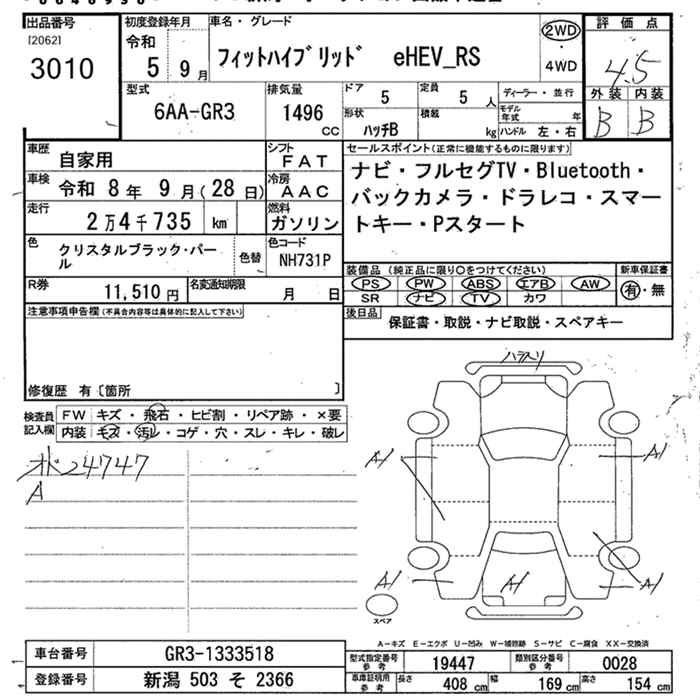 出品番号
[2062]
3010
初度登録年月
令和
5 9月
車名・グレード
フィットハイブリッド eHEV_RS
2WD
・
4WD
評価点
4.5
外装 内装
B B
型式
6AA-GR3
排気量
1496
CC
ドア
5
定員
5 人
形状
ハッチB
積載
kg
ディーラー・並行
モデル
年式 年
ハンドル 左・右
車歴
自家用
シフト
FAT
車検
令和 8年 9月(28日)
冷房
AAC
走行
2万4千735 km
燃料
ガソリン
色
クリスタルブラック・パー
ル
色替
色コード
NH731P
R券
11,510 円
名変通知期限
月 日
セールスポイント(正常に機能するものに限ります)
ナビ・フルセグTV・Bluetooth・
バックカメラ・ドラレコ・スマー
トキー・Pスタート
装備品(純正品に限り○をつけてください)
PS PW ABS エアB AW
SR ナビ TV カワ
新車保証書
有・無
後日品
保証書・取説・ナビ取説・スペアキー
注意事項申告欄(不具合内容等は具体的に記入して下さい)
修復歴 有〔箇所 〕
検査員
記入欄
FW キズ・飛石・ヒビ割・リペア跡・×要
内装 キズ・汚レ・コゲ・穴・スレ・キレ・破レ
24747
A
A1
A1
A1
A1
A1
スペア
A-キズ E-エクボ U-凹み W-補修跡 S-サビ C-腐食 XX-交換済
車台番号
GR3-1333518
登録番号
新潟 503 そ 2366
型式指定番号
参考
19447
類別区分番号
参考
0028
車庫証明用
参考
長さ
408 cm
幅
169 cm
高さ
154 cm